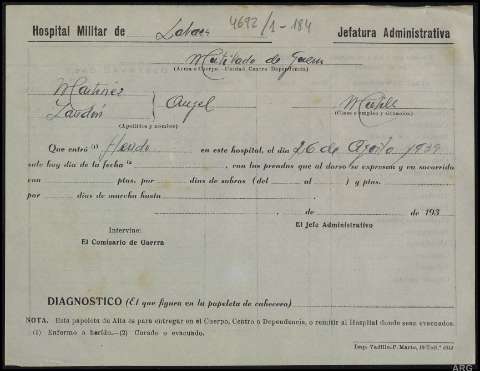 Hospital Militar de Zahara 4692/1-184 Jefatura Administrativa
Mutilado de Guerra
(Arma o Cuerpo - Unidad, Centro Dependencia)
Martínez
Landín } Angel
(Apellidos y nombre) (Clase o empleo y situación)
Que entró (1) Herido en este hospital, el día 26 de Agosto 1939
sale hoy día de la fecha (2) , con las prendas que al dorso se expresan y va socorrido
con ptas. por días de sobras (del al ) y ptas.
por días de marcha hasta
de de 193
Intervine: El Jefe Administrativo
El Comisario de Guerra
DIAGNOSTICO (El que figura en la papeleta de cabecera)
NOTA. Esta papeleta de Alta es para entregar en el Cuerpo, Centro o Dependencia, o remitir al Hospital donde sean evacuados.
(1) Enfermo o herido.—(2) Curado o evacuado.
ARG